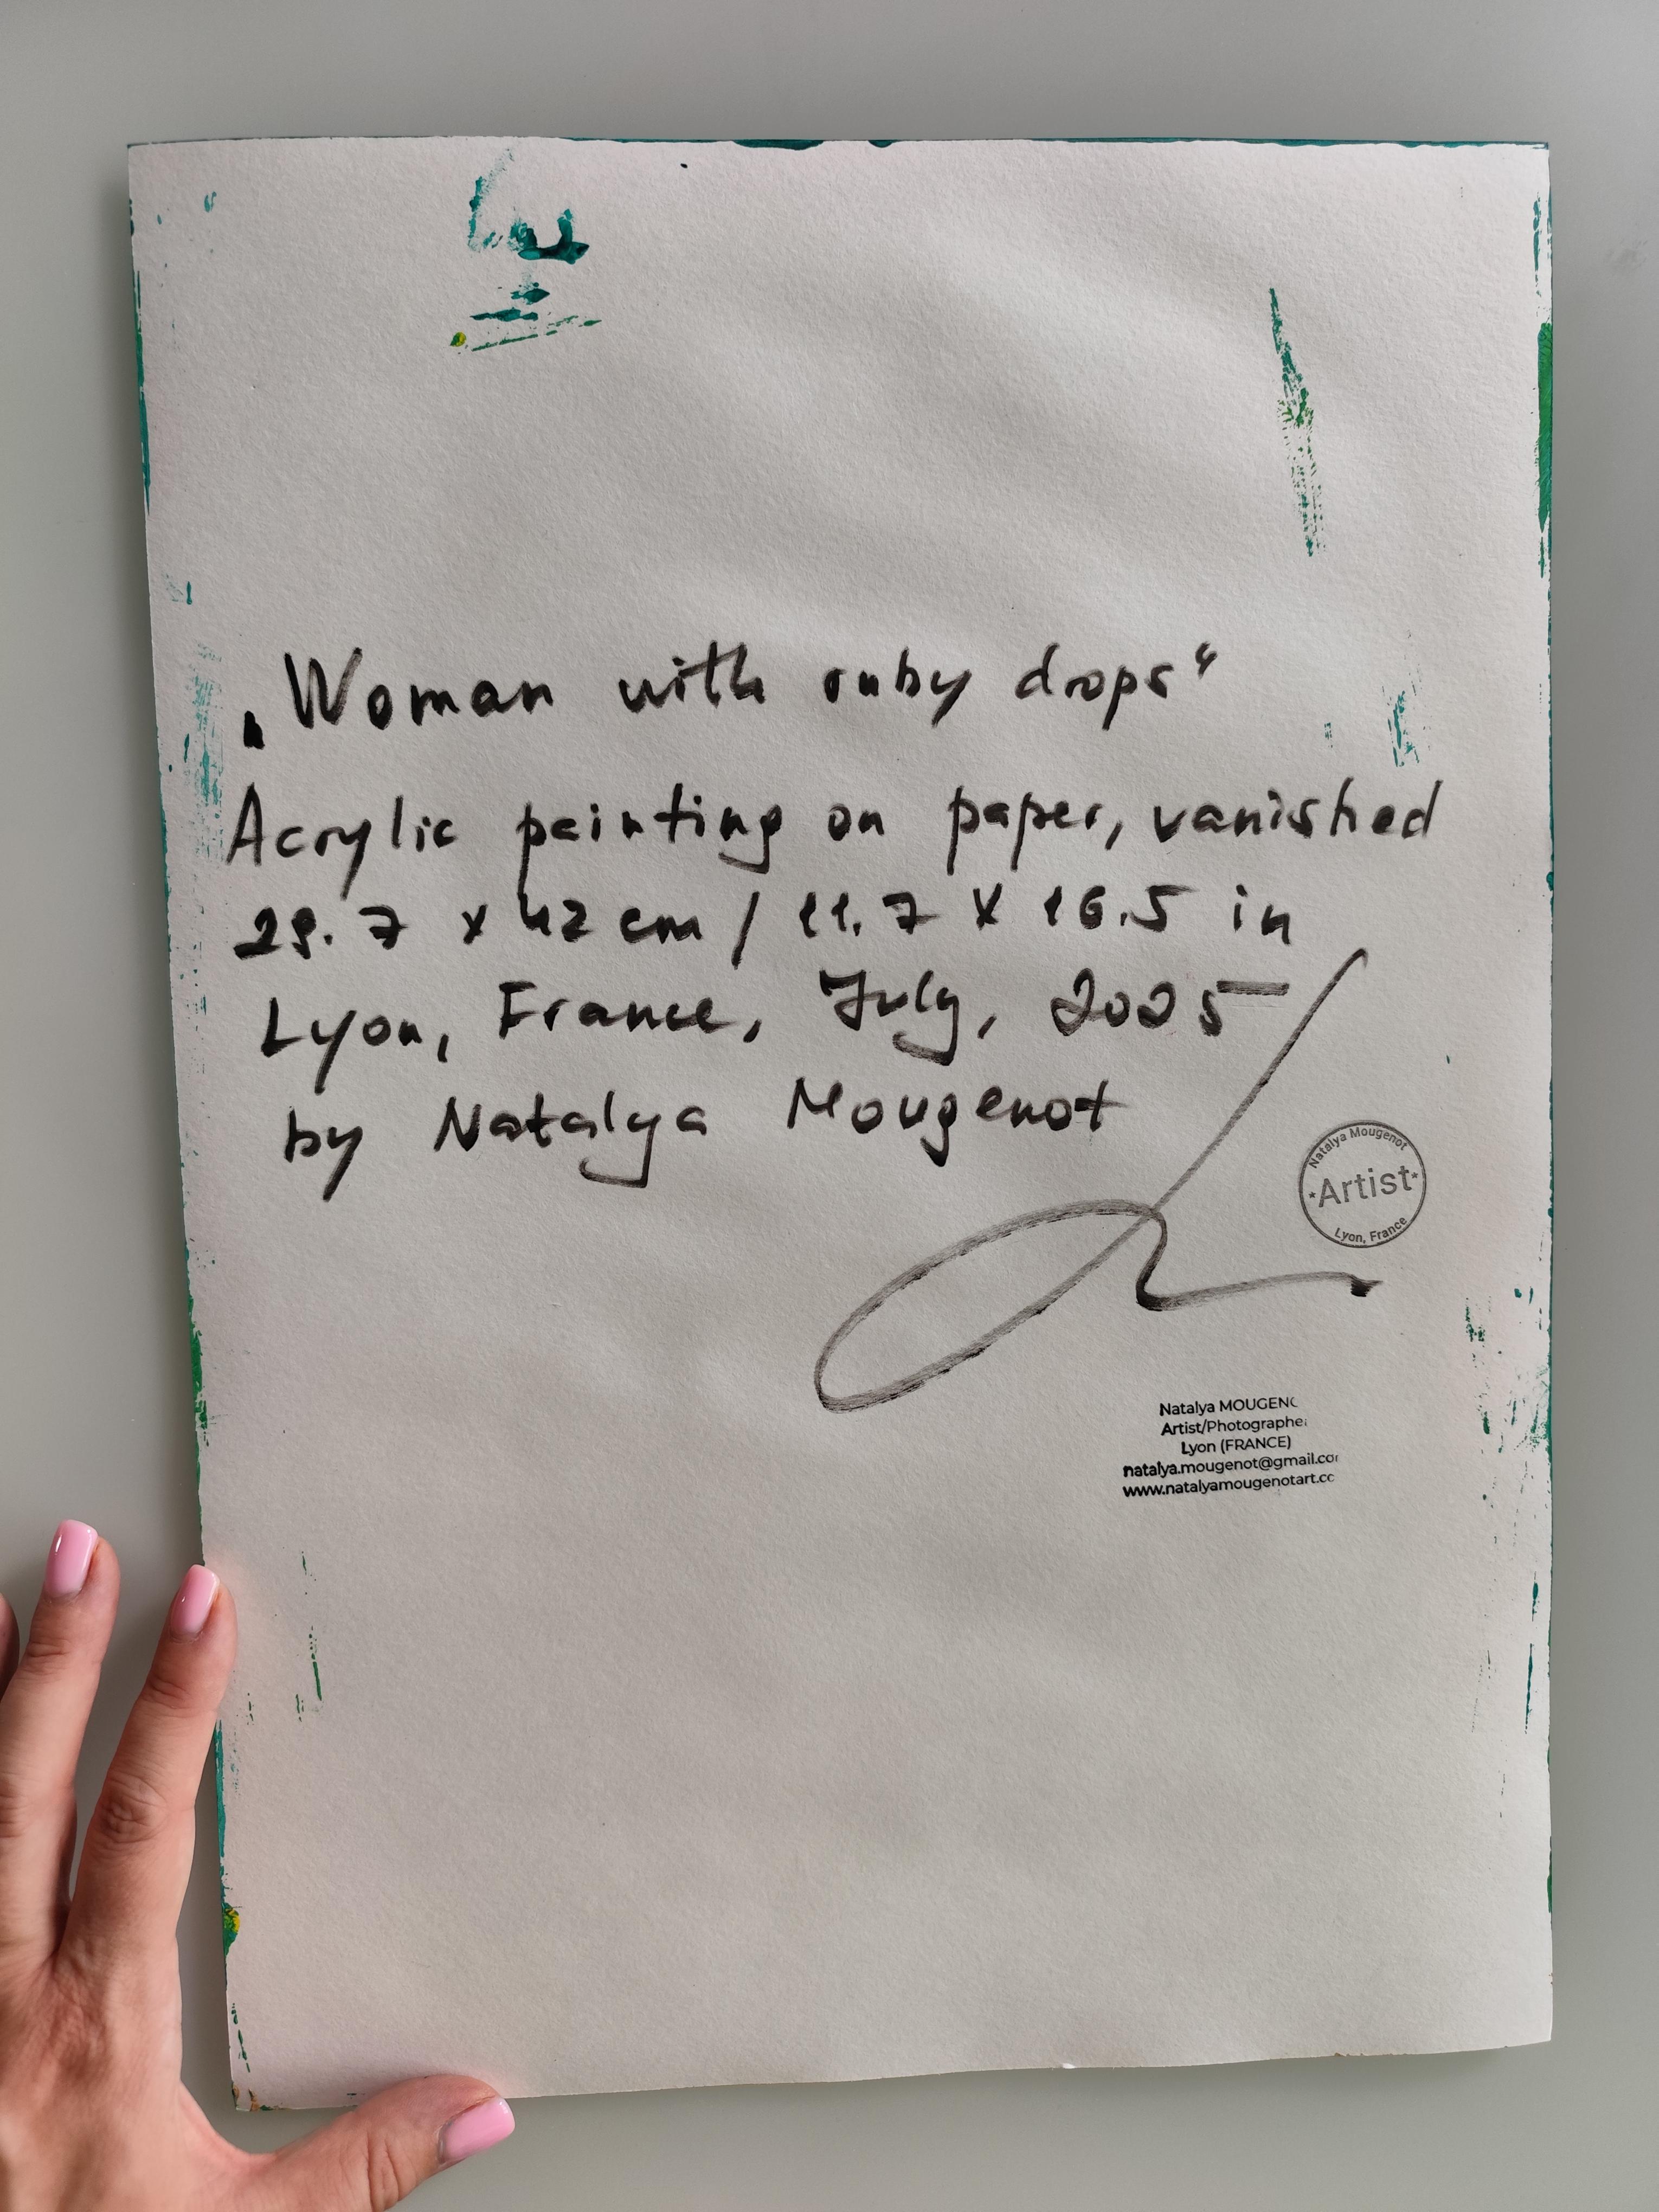 „Woman with ruby drops“
Acrylic painting on paper, vanished
29.7 x 42 cm / 11.7 x 16.5 in
Lyon, France, July, 2025
by Natalya Mougenot
Natalya Mougenot
*Artist*
Lyon, France
Natalya MOUGENO
Artist/Photographer
Lyon (FRANCE)
natalya.mougenot@gmail.com
www.natalyamougenotart.co